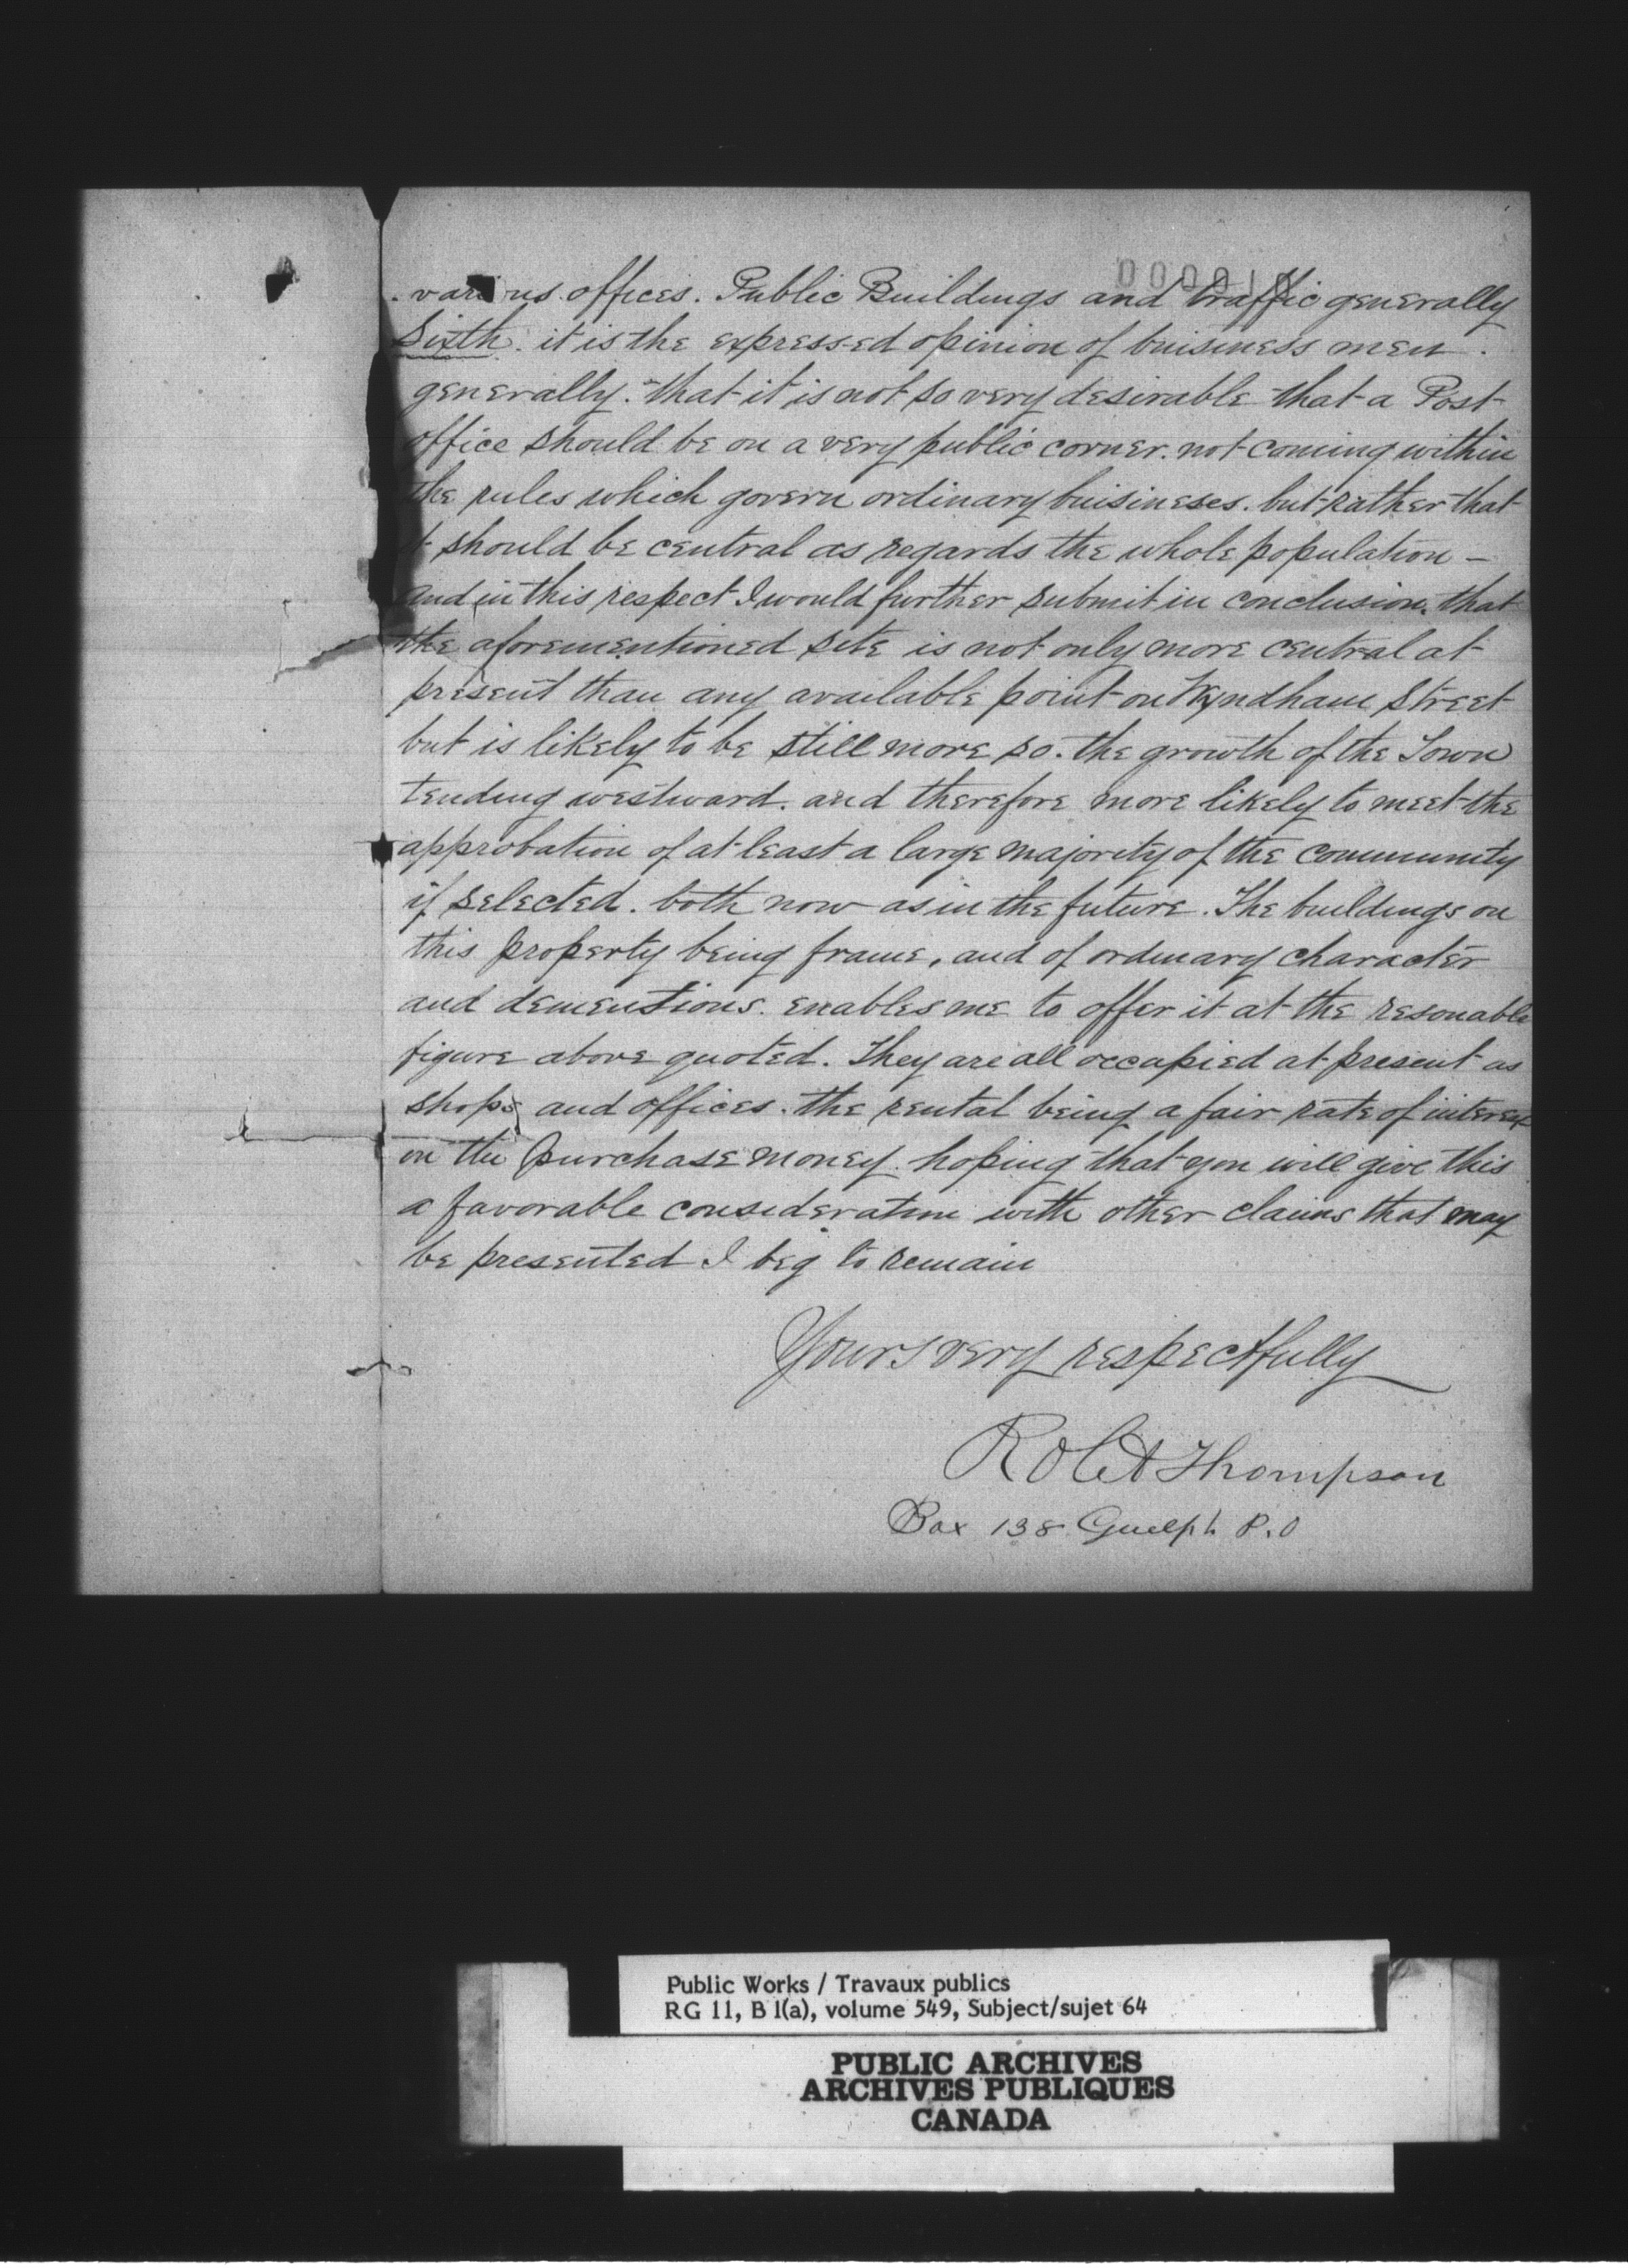 various offices. Public Buildings and traffic generally
Sixth. it is the expressed opinion of buisiness men.
generally. that it is not so very desirable that a Post
office should be on a very public corner. not coming within
the rules which govern ordinary buisineses. but rather that
it should be central as regards the whole population —
and in this respect I would further submit in conclusion. that
the aforementioned site is not only more central at
present than any available point on Wyndham Street
but is likely to be still more so. the growth of the Town
tending westward. and therefore more likely to meet the
approbation of at least a large majority of the community
if selected. both now as in the future. The buildings on
this property being frame, and of ordinary character
and dementions. enables me to offer it at the resonable
figure above quoted. They are all occupied at present as
shops and offices. the rental being a fair rate of interest
on the purchase money. hoping that you will give this
a favorable consideration with other claims that may
be presented I beg to remain
Yours very respectfully
Robt Thompson
Box 138 Guelph P.O
Public Works / Travaux publics
RG 11, B 1(a), volume 549, Subject/sujet 64
PUBLIC ARCHIVES
ARCHIVES PUBLIQUES
CANADA